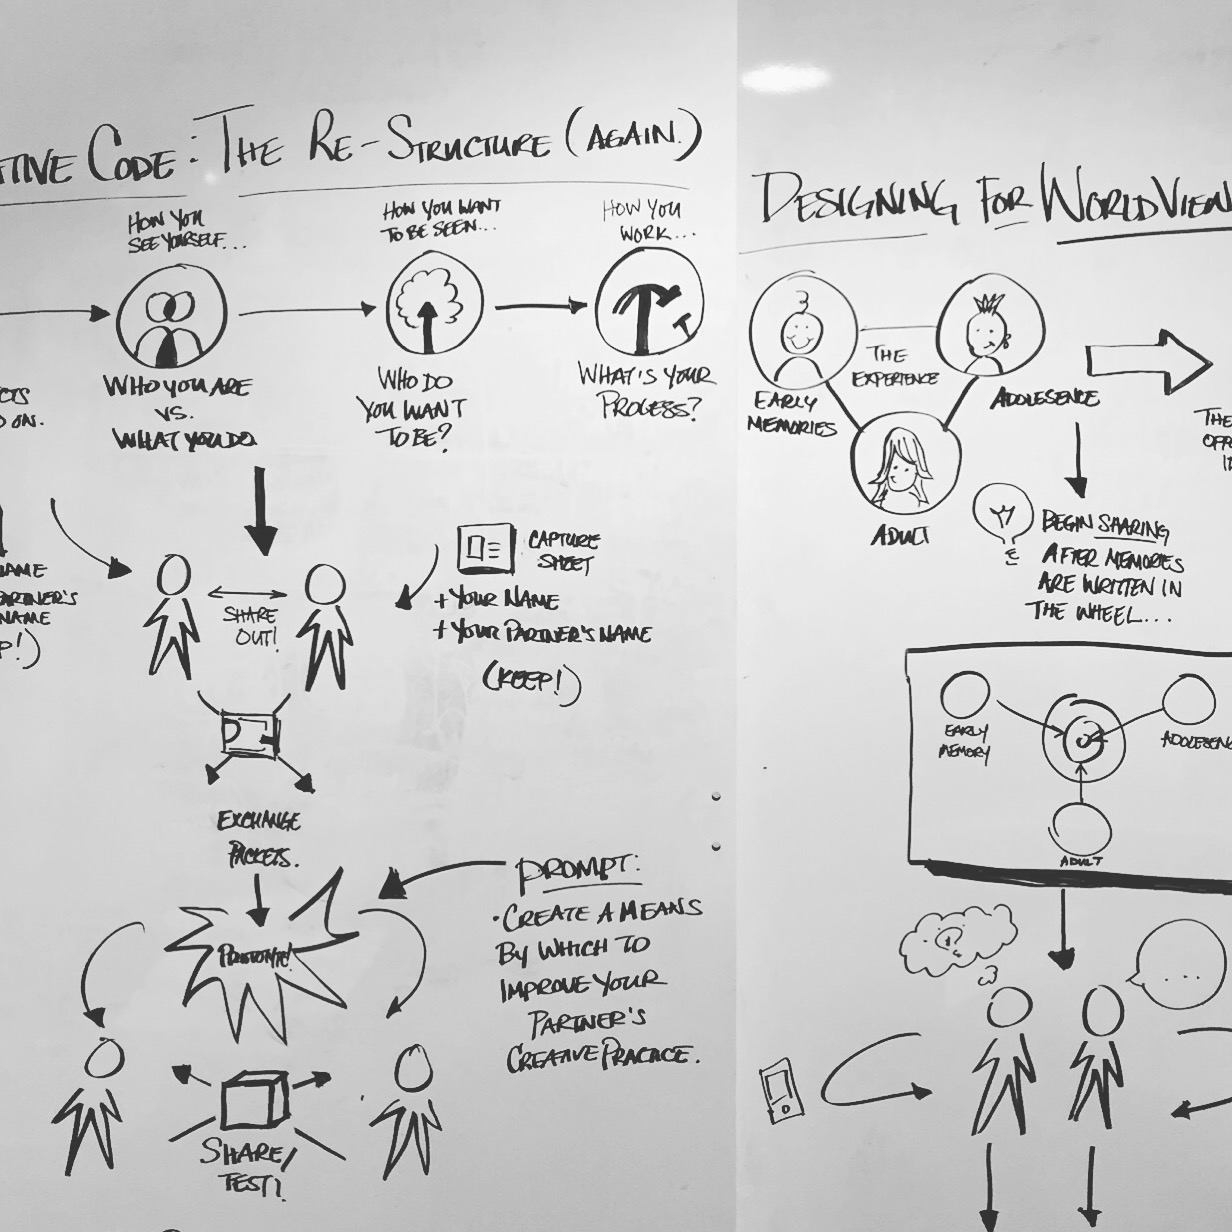 TIVE CODE: THE RE-STRUCTURE (AGAIN.)
HOW YOU
SEE YOURSELF...
HOW YOU WANT
TO BE SEEN...
HOW YOU
WORK...
WHO YOU ARE
VS.
WHAT YOU DO.
WHO DO
YOU WANT
TO BE?
WHAT'S YOUR
PROCESS?
CTS
ON.
NAME
PARTNER'S
NAME
P!)
SHARE
OUT!
CAPTURE
SHEET
+ YOUR NAME
+ YOUR PARTNER'S NAME
(KEEP!)
EXCHANGE
PACKETS.
PROTOTYPE!
PROMPT:
· CREATE A MEANS
BY WHICH TO
IMPROVE YOUR
PARTNER'S
CREATIVE PRACTICE.
SHARE/
TEST!
DESIGNING FOR WORLDVIEW
THE
EXPERIENCE
EARLY
MEMORIES
ADOLESENCE
ADULT
THE
OFF
BEGIN SHARING
AFTER MEMORIES
ARE WRITTEN IN
THE WHEEL...
EARLY
MEMORY
ADOLESENC
ADULT
...